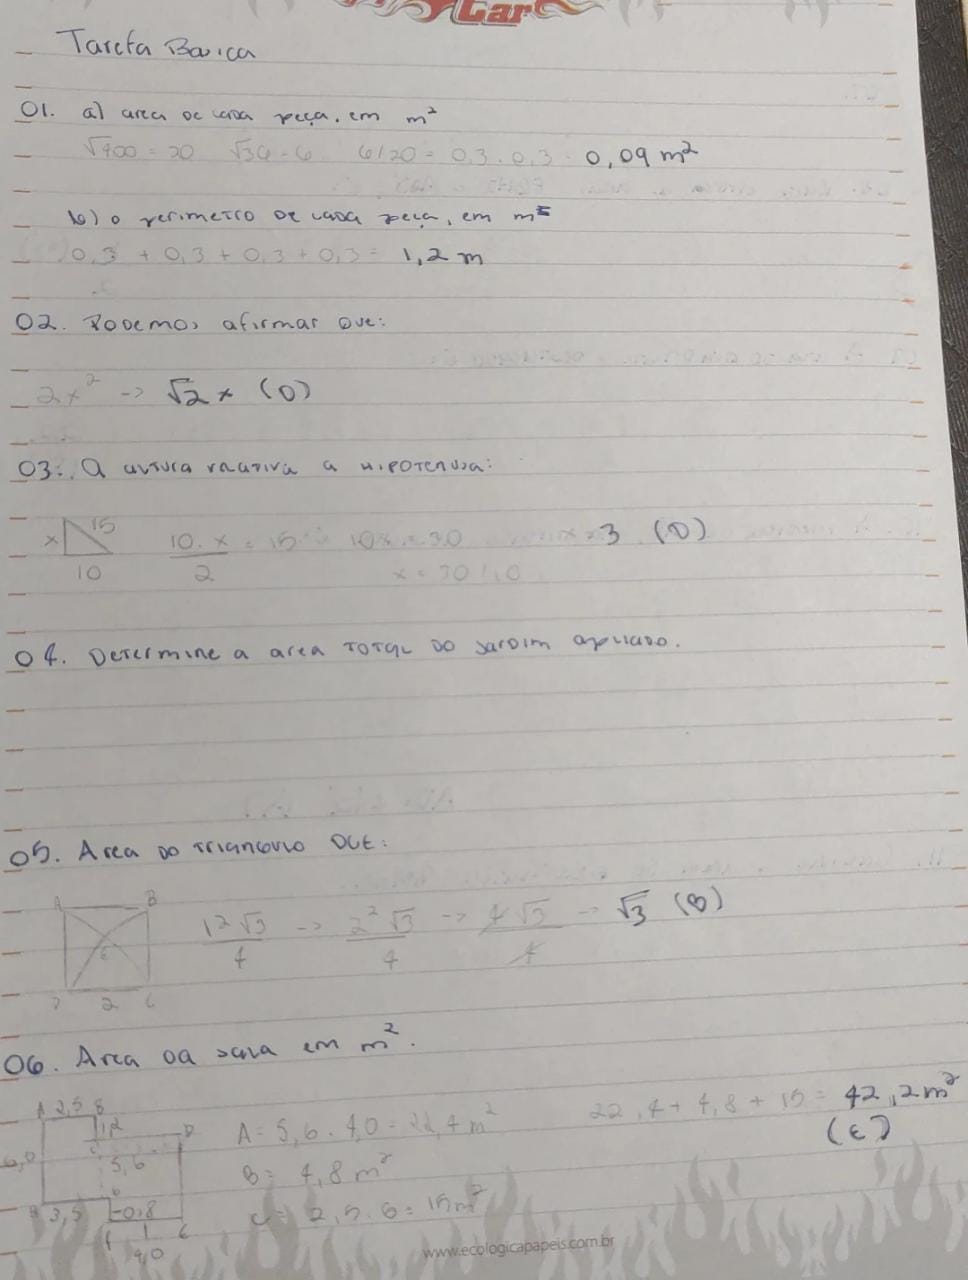 Car
Tarefa Basica
01. a) area de cada peça, em m²
√400 = 20 √36 = 6 6/20 = 0,3 . 0,3 = 0,09 m²
b) o perimetro de cada peça, em m
0,3 + 0,3 + 0,3 + 0,3 = 1,2 m
02. Podemos afirmar que:
2x² -> √2 x (D)
03. A altura relativa a hipotenusa:
x 15 10.x/2 = 15 10x = 30 x = 3 (D)
10 x = 30/10
04. Determine a area total do jardim apliado.
05. Area do triangulo DCE:
A B 12√3/4 -> 2²√3/4 -> 4√3/4 -> √3 (B)
E
D 2 C
06. Area da sala em m².
A 2,5 B A = 5,6 . 4,0 = 22,4 m² 22,4 + 4,8 + 15 = 42,2 m²
1,2 D (E)
6,0 5,6 B = 4,8 m²
3,5 0,8 C = 2,5 . 6 = 15 m²
F 1 E
9,0
www.ecologicapapeis.com.br